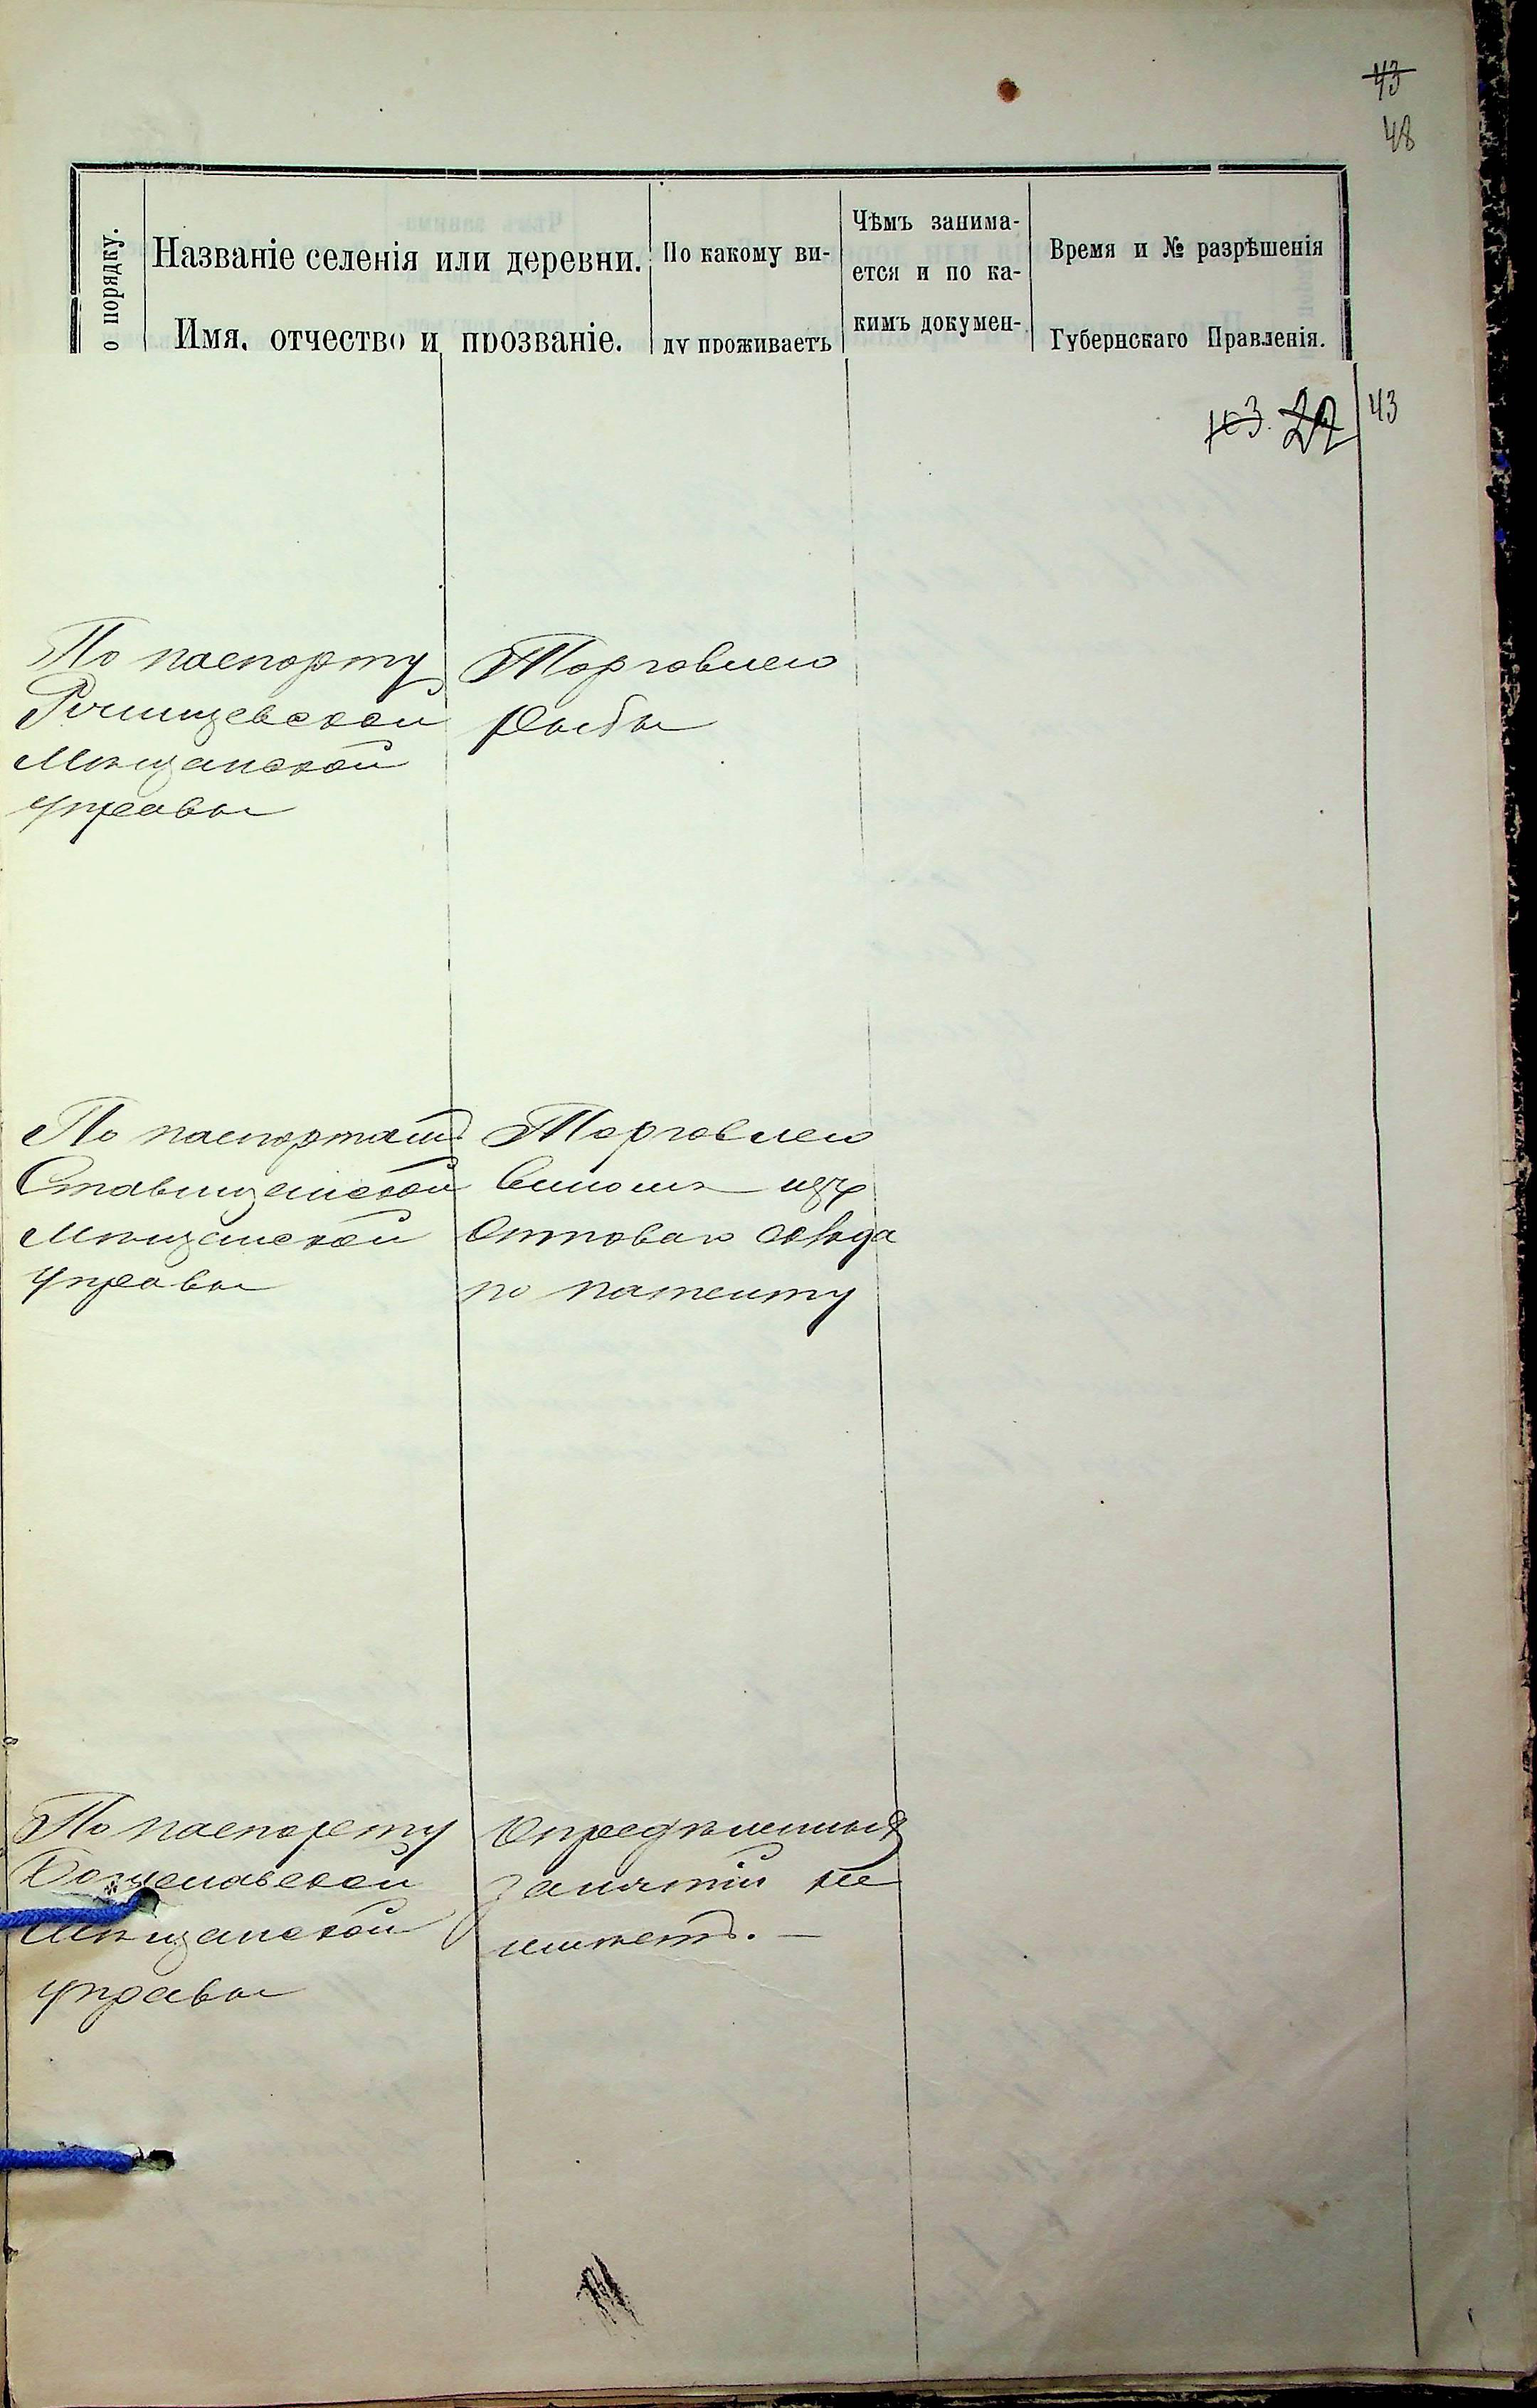 43
48
о порядку.
Названіе селенія или деревни.
Имя, отчество и прозваніе.
По какому ви-
ду проживаетъ
Чѣмъ занима-
ется и по ка-
кимъ докумен-
Время и № разрѣшенія
Губернскаго Правленія.
43
По паспорту
Мѣщанской
управы
Торговлею
рыбы
По паспортамъ
Ставищанской
Мѣщанской
Управы
Торговлею
виномъ изъ
Оптоваго склада
по патенту
По паспорту
Богуславской
Мѣщанской
управы
Опредѣленныхъ
занятій не
имѣетъ. —